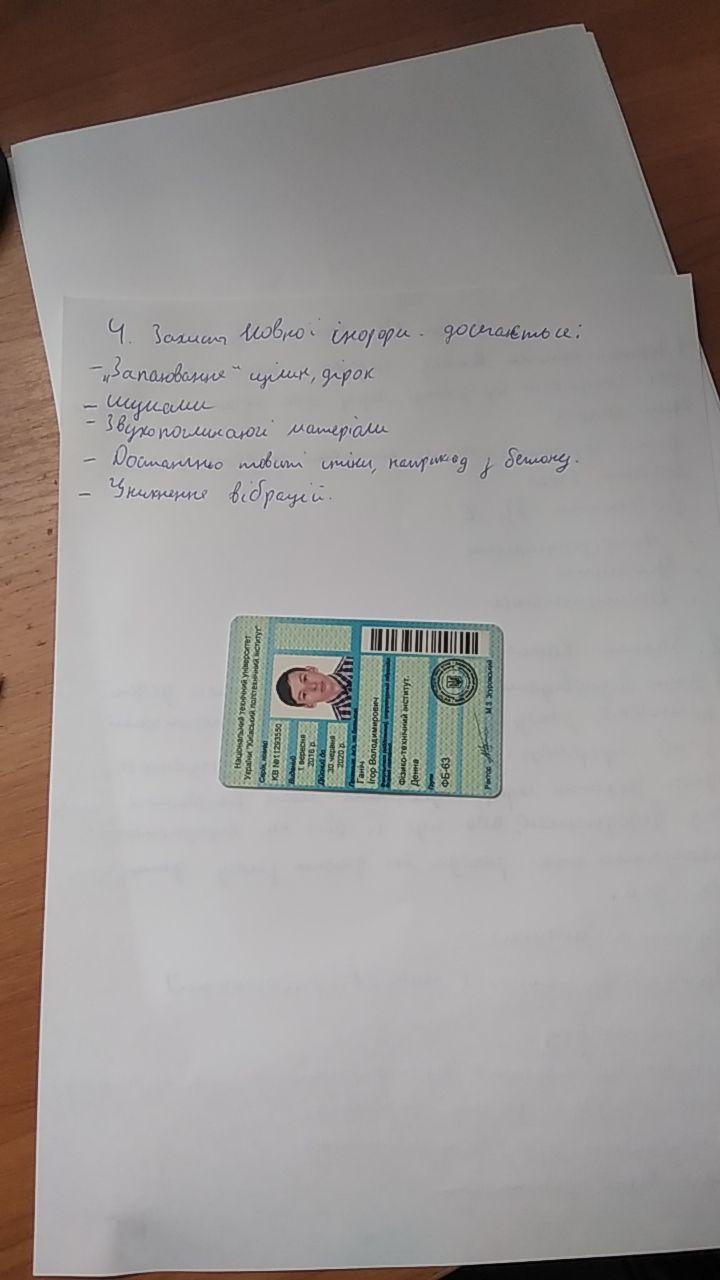 4. Захист Мовної інформ. досягається:
- „Запаювання" щілин, дірок
- Шумами
- Звукопоглинаючі матеріали
- Достатньо товсті стіни, наприклад з бетону.
- Уникнення вібрацій.
Національний технічний університет
України "Київський політехнічний інститут"
Серія, номер
КВ №11293550
Виданий
1 вересня
2016 р.
Дійсний до
30 червня
2020 р.
Ганін
Ігор Володимирович
Фізико-технічний інститут.
Денна
Група
ФБ-63
Ректор М.З. Згуровський